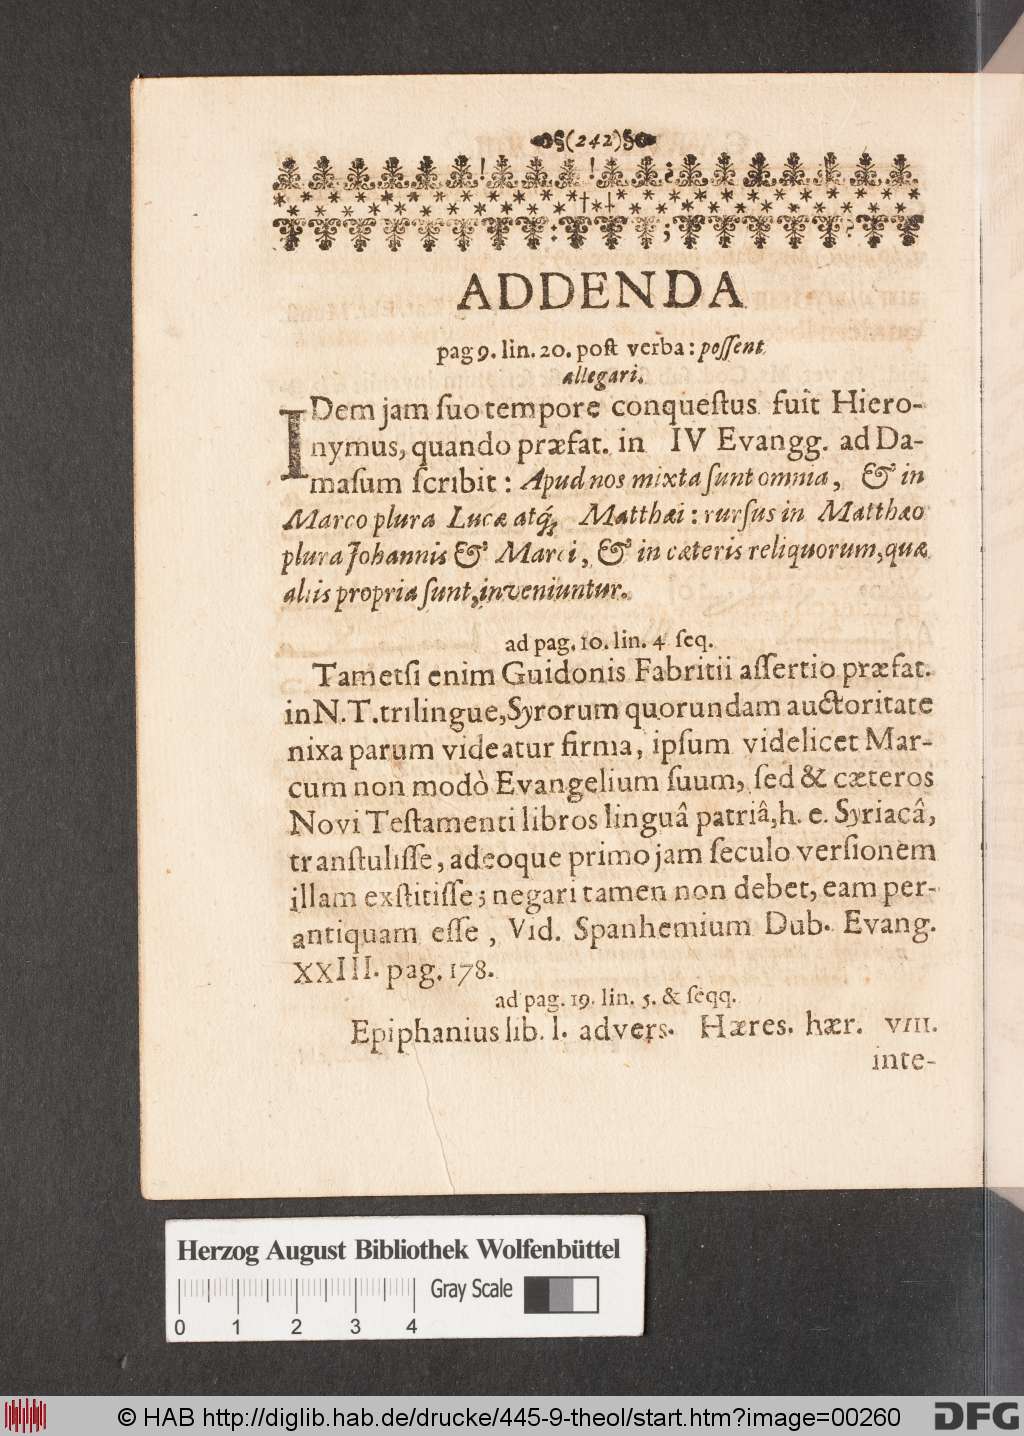 §(242)§
ADDENDA
pag 9. lin. 20. poſt verba: poſſent
allegari.
IDem jam ſuo tempore conqueſtus fuit Hiero-
nymus, quando præfat. in IV Evangg. ad Da-
maſum ſcribit: Apud nos mixta ſunt omnia, & in
Marco plura Lucæ atq́; Matthæi: rurſus in Matthæo
plura Johannis & Marci, & in cæteris reliquorum, quæ
aliis propria ſunt, inveniuntur.
ad pag. 10. lin. 4 ſeq.
Tametſi enim Guidonis Fabritii aſſertio præfat.
in N. T. trilingue, Syrorum quorundam auctoritate
nixa parum videatur firma, ipſum videlicet Mar-
cum non modò Evangelium ſuum, ſed & cæteros
Novi Teſtamenti libros linguâ patriâ, h. e. Syriacâ,
tranſtuliſſe, adeoque primo jam ſeculo verſionem
illam exſtitiſſe; negari tamen non debet, eam per-
antiquam eſſe, Vid. Spanhemium Dub. Evang.
XXIII. pag. 178.
ad pag. 19. lin. 5. & ſeqq.
Epiphanius lib. l. advers. Hæres. hær. VIII.
inte-
Herzog August Bibliothek Wolfenbüttel
Gray Scale
0 1 2 3 4
© HAB http://diglib.hab.de/drucke/445-9-theol/start.htm?image=00260
DFG